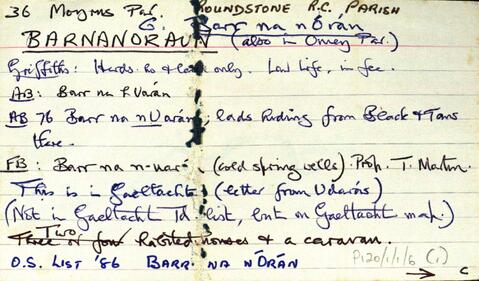 36 Moyrus Par. ROUNDSTONE R.C. PARISH
G. Barr na nÓrán
BARNANORAUN (also in Omey Par.)
Griffiths: Herds ho & land only. Law Life, in fee.
AB: Barr na h Uarán
AB 76 Barr na nUarán, lads hiding from Black & Tans
there.
FB: Barr na n-uarán (cold spring wells). Prop. T. Martin.
This is in Gaeltacht (letter from Udarás)
(Not in Gaeltacht Td. list, but on Gaeltacht map.)
Two
Three or four houses & a caravan.
O.S. LIST '86 BARR NA NÓRÁN
P120/1/1/6 (i)
→ C